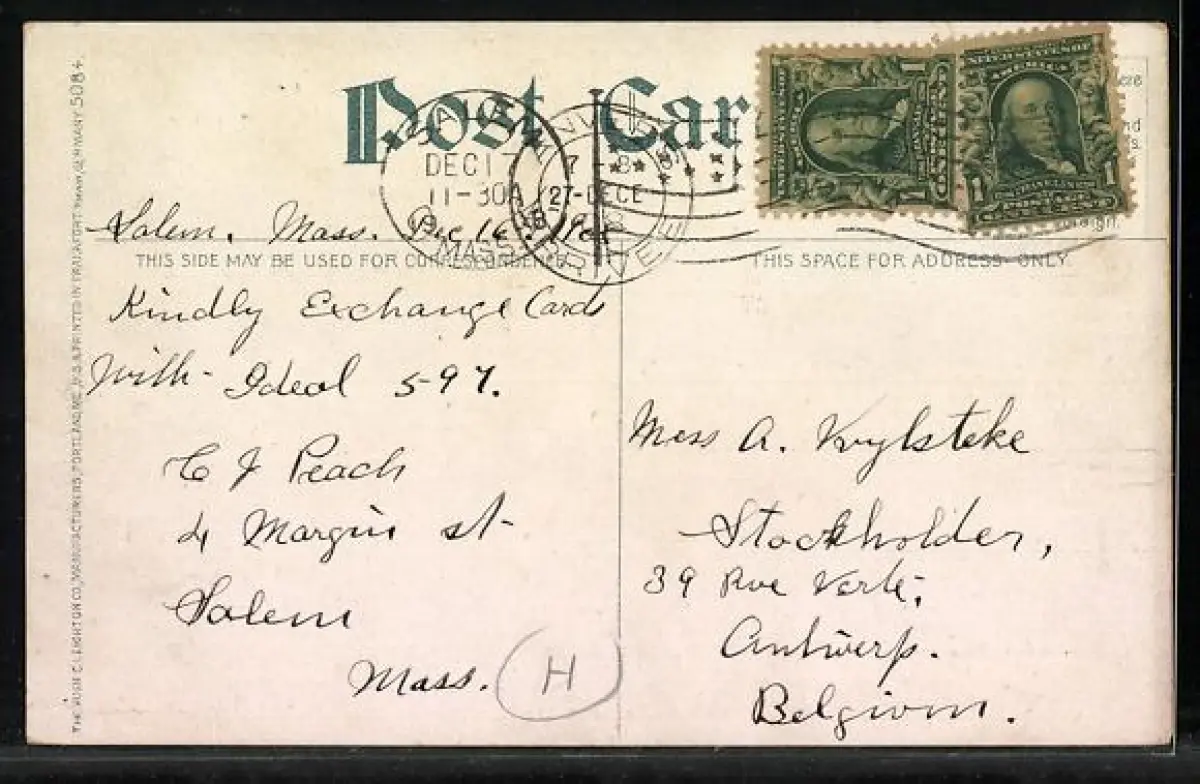 Post Car
SALEM
DEC 17
11-30A
MASS.
7-8
27-DECE
UNITED STATES OF
AMERICA
1 1
POSTAGE
Salem. Mass. Dec 16. 190
THIS SIDE MAY BE USED FOR CORRESPONDENCE
THIS SPACE FOR ADDRESS ONLY
Kindly Exchange Cards
with - Ideal 597.
C J Peach
4 Margin st
Salem
Mass.
H
Miss A.
Stockholder,
39 Rue Verte,
Antwerp.
Belgium.
THE HUGH C. LEIGHTON CO., MANUFACTURERS, PORTLAND, ME., U.S.A. PRINTED IN FRANKFORT MAIN, GERMANY 5084